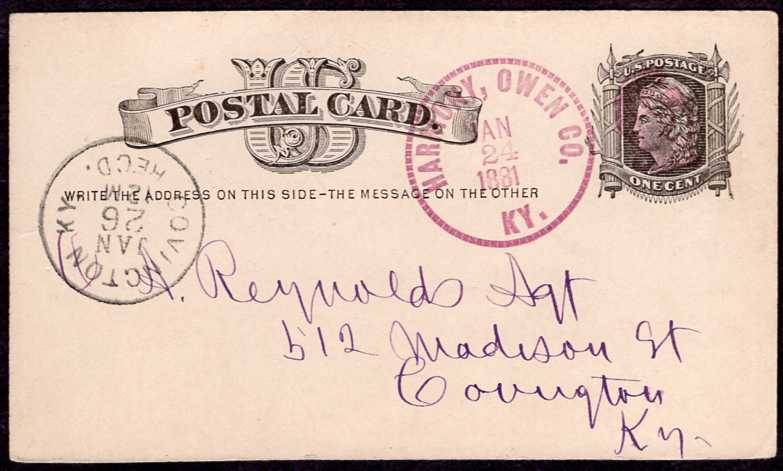 US
POSTAL CARD.
WRITE THE ADDRESS ON THIS SIDE - THE MESSAGE ON THE OTHER
U.S. POSTAGE
ONE CENT
HARMONY, OWEN CO.
JAN
24
1881
KY.
COVINGTON KY.
JAN
26
REC'D.
A. Reynolds Agt
512 Madison St
Covington
Ky.